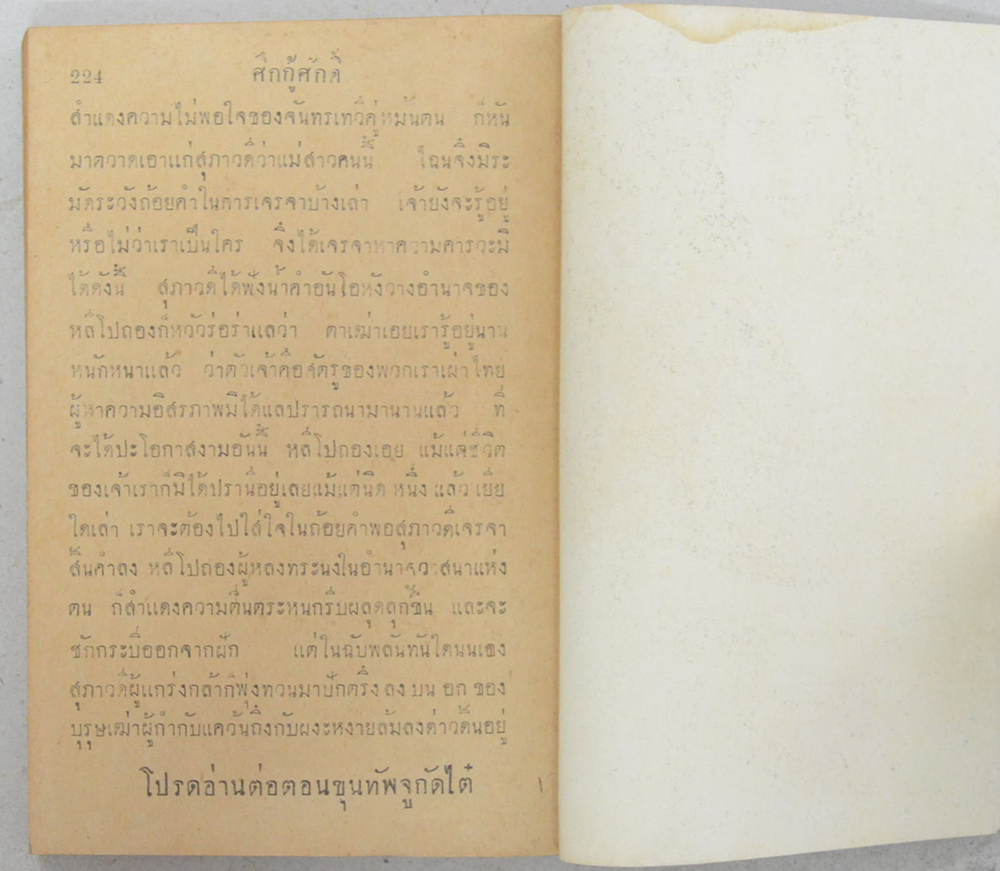 224
ศึกกู้ศักดิ์
สำแดงความไม่พอใจของจันทรเทวีคู่หมั้นตน ก็หัน
มาตวาดเอาแก่สุภาวดีว่าแม่สาวคนนี้ ไฉนจึงมิระ
มัดระวังถ้อยคำในการเจรจาบ้างเล่า เจ้ายังจะรู้อยู่
หรือไม่ว่าเราเป็นใคร จึงได้เจรจาหาความคารวะมิ
ได้ดังนี้ สุภาวดีได้ฟังน้ำคำอันโอหังวางอำนาจของ
หลีโปถองก็หวัวร่อร่าแลว่า ตาเฒ่าเอยเรารู้อยู่นาน
หนักหนาแล้ว ว่าตัวเจ้าคือสัตรูของพวกเราเผ่าไทย
ผู้หาความอิสรภาพมิได้แลปรารถนามานานแล้ว ที่
จะได้ปะโอกาสงามอันนี้ หลีโปถองเอย แม้แต่ชีวิต
ของเจ้าเราก็มิได้ปรานีอยู่เลยแม้แต่นิด หนึ่ง แล้ว เยี่ย
ใดเล่า เราจะต้องไปใส่ใจในถ้อยคำพอสุภาวดีเจรจา
สิ้นคำลง หลีโปถองผู้หลงทระนงในอำนาจวาสนาแห่ง
ตน ก็สำแดงความตื่นตระหนกรีบผลุดลุกขึ้น และจะ
ชักกระบี่ออกจากฝัก แต่ในฉับพลันทันใดนนเอง
สุภาวดีผู้แกร่งกล้าก็พุ่งทวนมาปักตรึง ลง บน อก ของ
บุรุษเฒ่าผู้กำกับแคว้นถึงกับผงะหงายล้มลงด่าวดิ้นอยู่
โปรดอ่านต่อตอนขุนทัพจูกัดไต๋